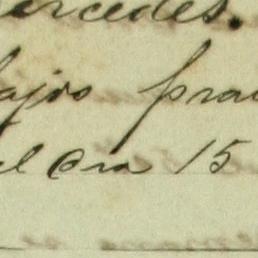 ercedes.
ajos prac
el Dia 15